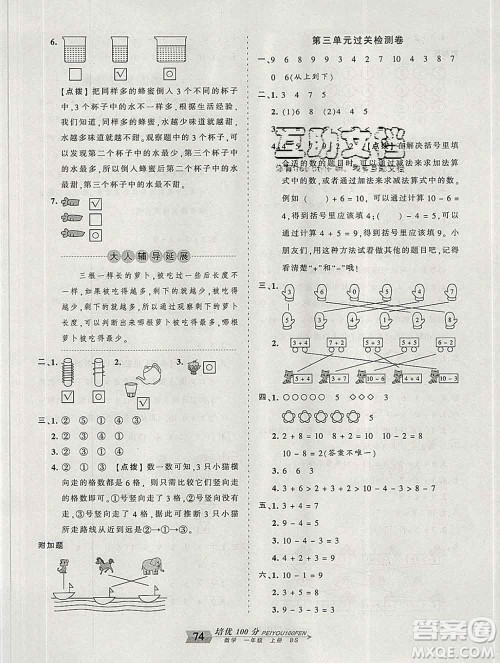 6.
[点拨]把同样多的蜂蜜倒入3个不同的杯子
中,3个杯子中的水不一样多。根据生活经
验,我们知道,当蜂蜜同样多时,水越少味道
就越甜,水越多味道就越甜。通过观察我们可以
发现,第二个杯子中的水最少,所以第二个杯
子中的水最甜,第三个杯子中的水最多,所以
第三个杯子中的水最不甜。
7.
大人辅导延展
三根一样长的萝卜,被吃过一些后不一样
长了。如果被吃掉的越多,剩下的就越少;被吃
掉的越少,剩下的就越多。所以剩下最多的,就
是被吃得最少的
二、1. 2. 3.
三、1. ② ⑤ ① ④ ③
2. ⑤ ① ③ ② ④
3. ② ① ④ ③
4. ② ① ③ [点拨]数一数可知,3只小猫横
向走的格数同样多,只需比较3只小猫竖向走
的格数即可。①号竖向走了2格,②号竖向
走了1格,③号竖向走了3格。因此可推断3只小猫
所走路线从近到远是②→①→③。
附加题
第三单元过关检测卷
一、1. 9 6 9 9 3 4 3 8 7 9 10
0 6(从上到下)
二、1. 3 2. (1)6 (2) 4 4 5
互助文档
[点拨]在解决括号里填
合适的数的题目时,可以通过减法来求加法算
式中的数,也可以通过加法来求减法算式中的数。
例如( )+6=10,可以用10-6=4计
算,得出括号里应该填4;( )-6=3,可以
用6+3=9计算,得出括号里应该填9。小
朋友们,用这种方法试着做其他的题目吧!要看
清楚“+”和“-”哦!
三、1.
3 1 0 5 6 2
2. 3+3 2+5 5+0 6+2 4+5
5+4 3+4 10-4 8-3 10-2
四、1.
2. 2+8=10 8+2=10
10-8=2 10-2=8
3. 2+8=10(答案不唯一)
五、1. 3+5=8
2. 9-3=6
3. 1+2+3+4=10
六、1. 3+4=7
2. 10-7=3
3. 9-4=5
4. 7+2=9
74 培优100分 PEIYOU100FEN
数学 一年级 上册 BS
答案圈